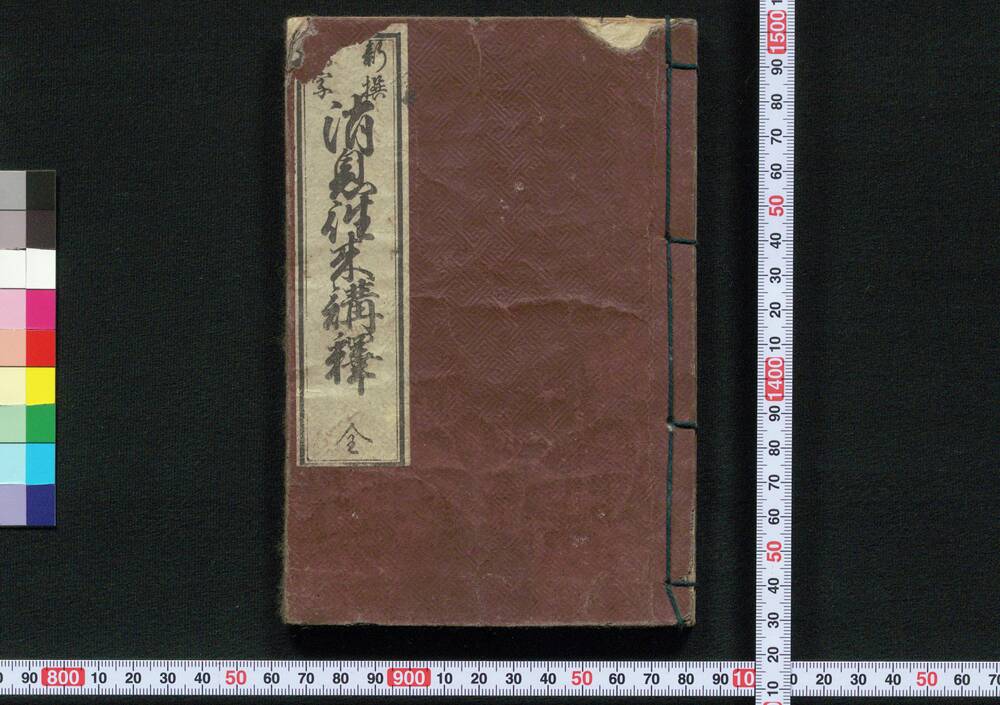 新撰
字
消息往来講釋
全
1500
90
80
70
60
50
40
30
20
10
1400
90
80
70
60
50
40
30
20
10
0 90 800 10 20 30 40 50 60 70 80 90 900 10 20 30 40 50 60 70 80 90 10 20 30 40 50 60 70